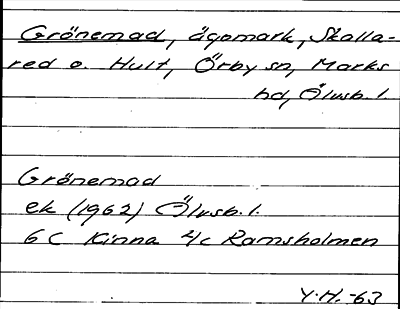 Grönemad, ägomark, Skalla-
red o. Hult, Örby sn, Marks
hd, Älvsb. l.
Grönemad
ek (1962) Älvsb. l.
6 C Kinna 4c Ramsholmen
Y.H. -63